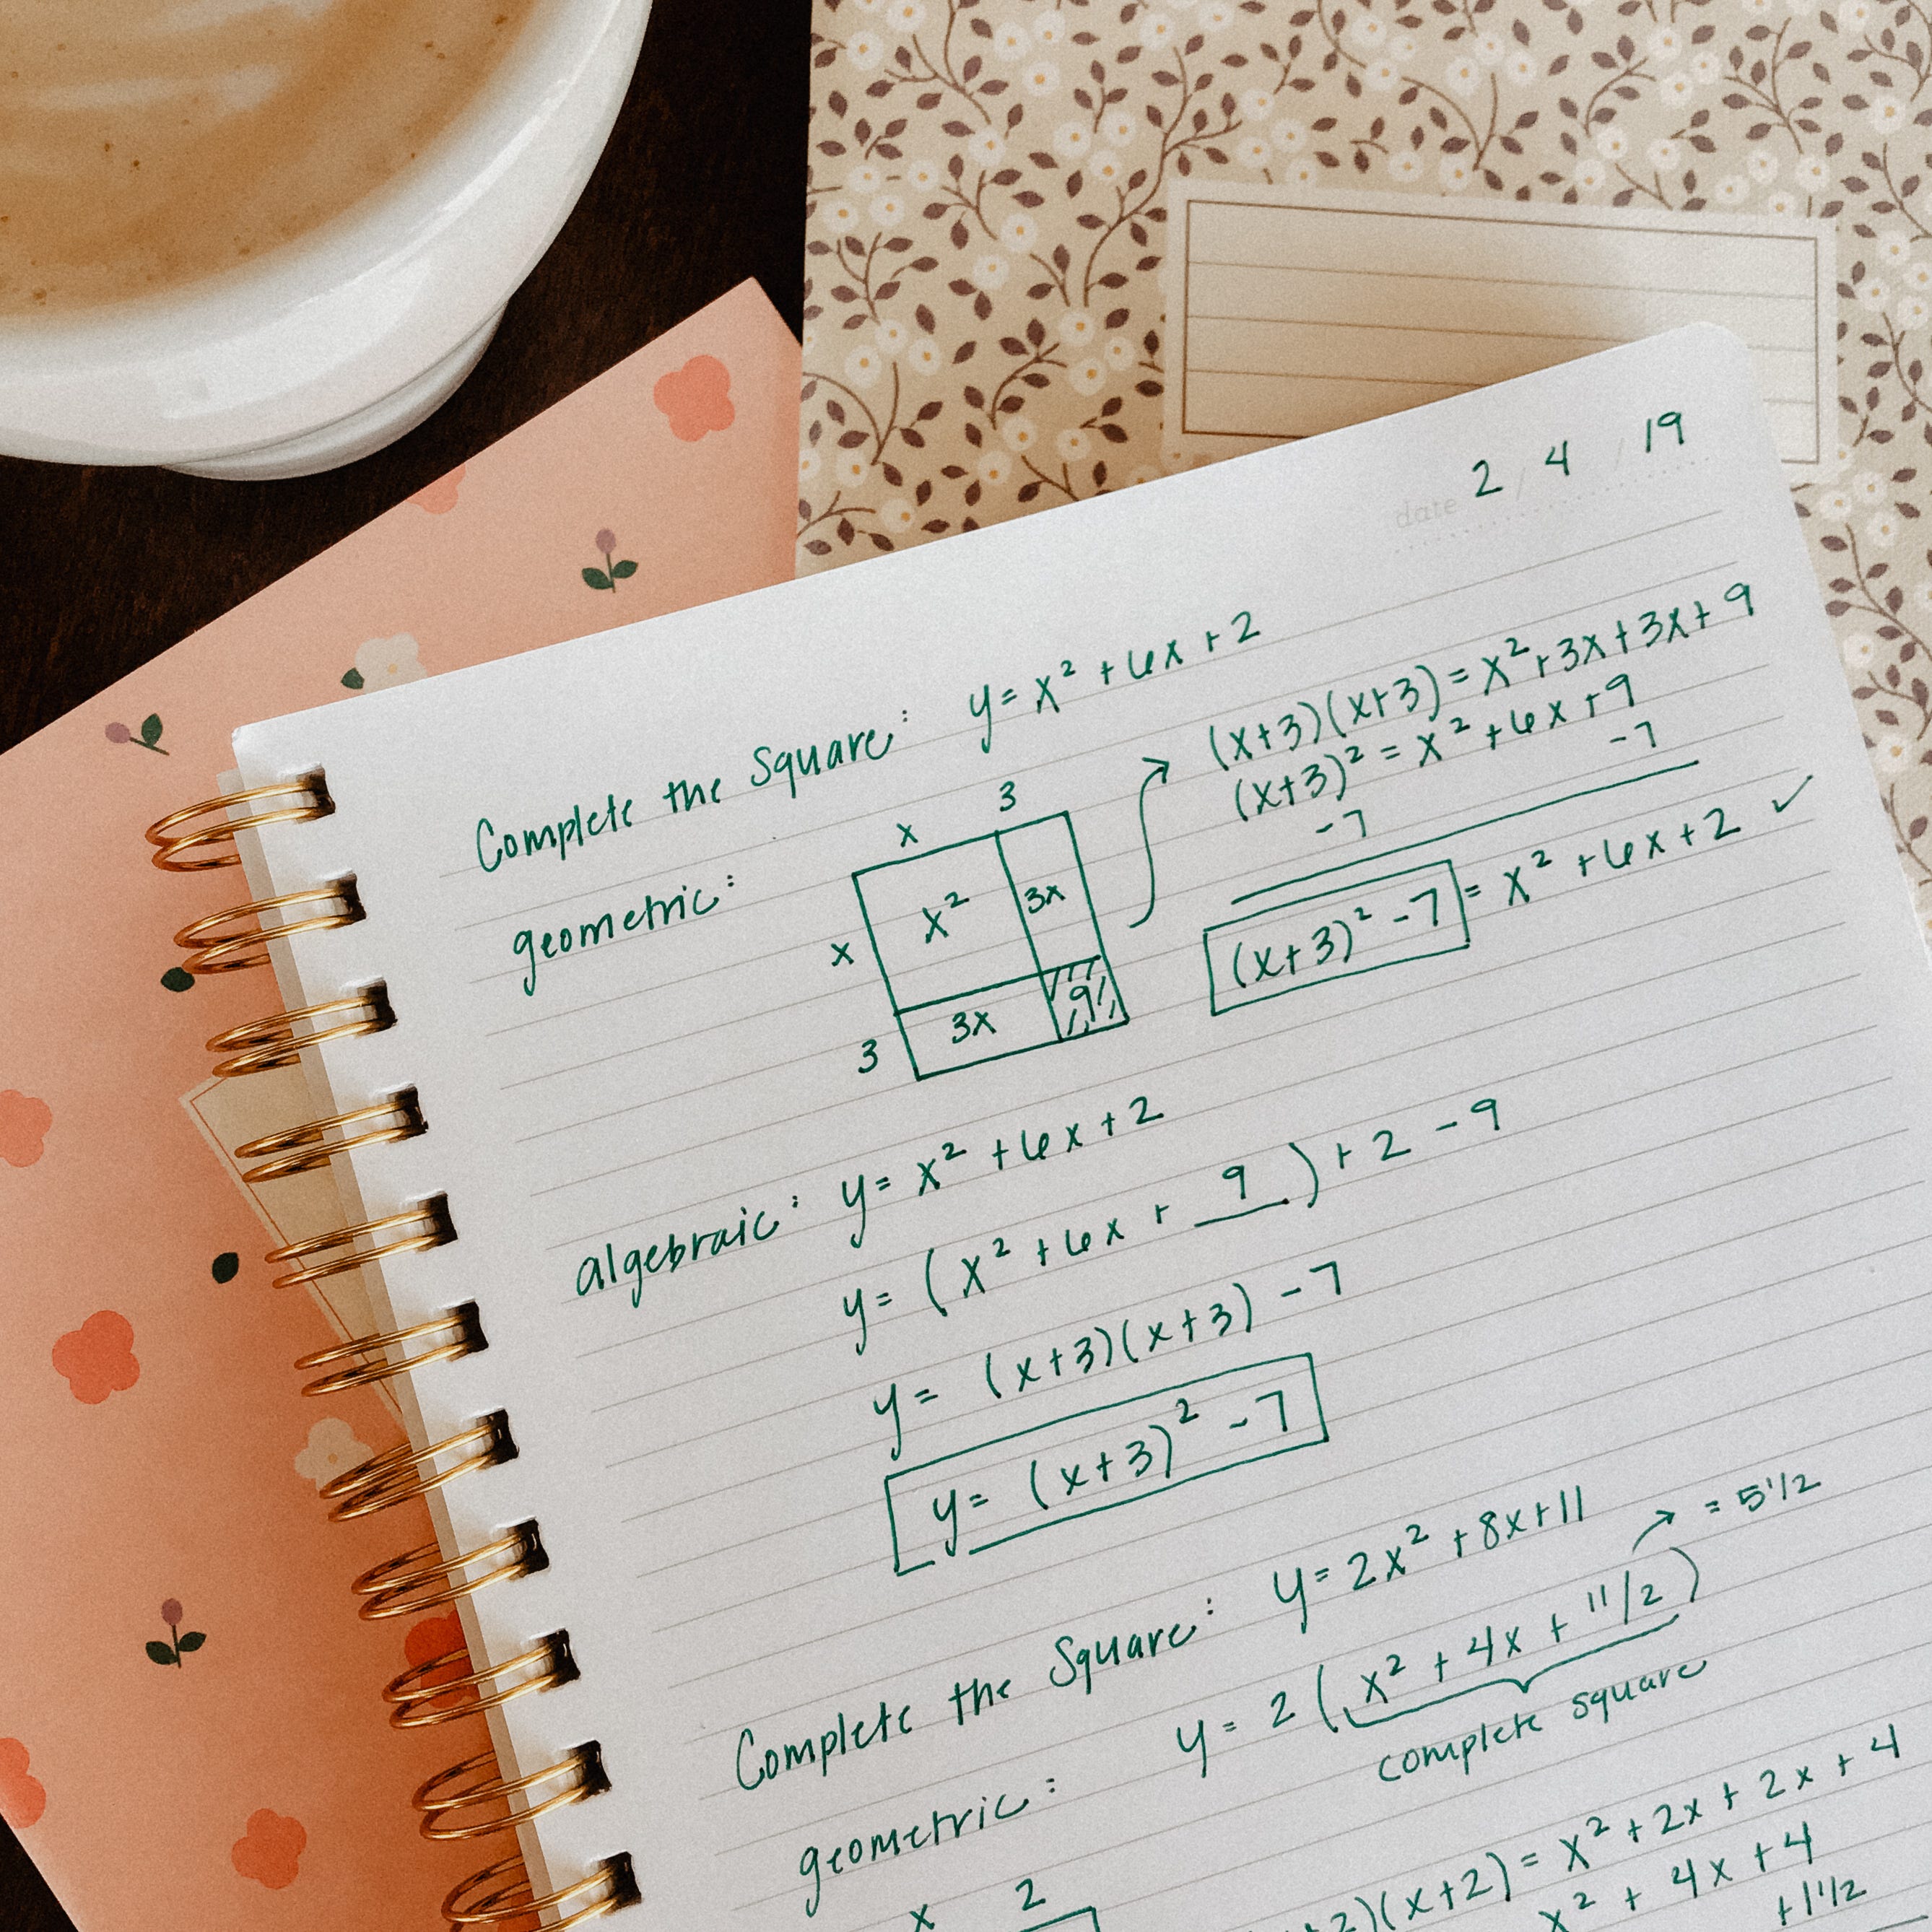 date 2 / 4 / 19
Complete the Square: y = x² + 6x + 2
geometric:
x 3
x x² 3x
3 3x 9
(x+3)(x+3) = x² + 3x + 3x + 9
(x+3)² = x² + 6x + 9
-7 -7
(x+3)² - 7 = x² + 6x + 2 ✓
algebraic: y = x² + 6x + 2
y = (x² + 6x + 9) + 2 - 9
y = (x+3)(x+3) - 7
y = (x+3)² - 7
Complete the Square: y = 2x² + 8x + 11
y = 2(x² + 4x + 11/2) = 5 1/2
complete square
geometric:
x 2
2)(x+2) = x² + 2x + 2x + 4
x² + 4x + 4
+1 1/2